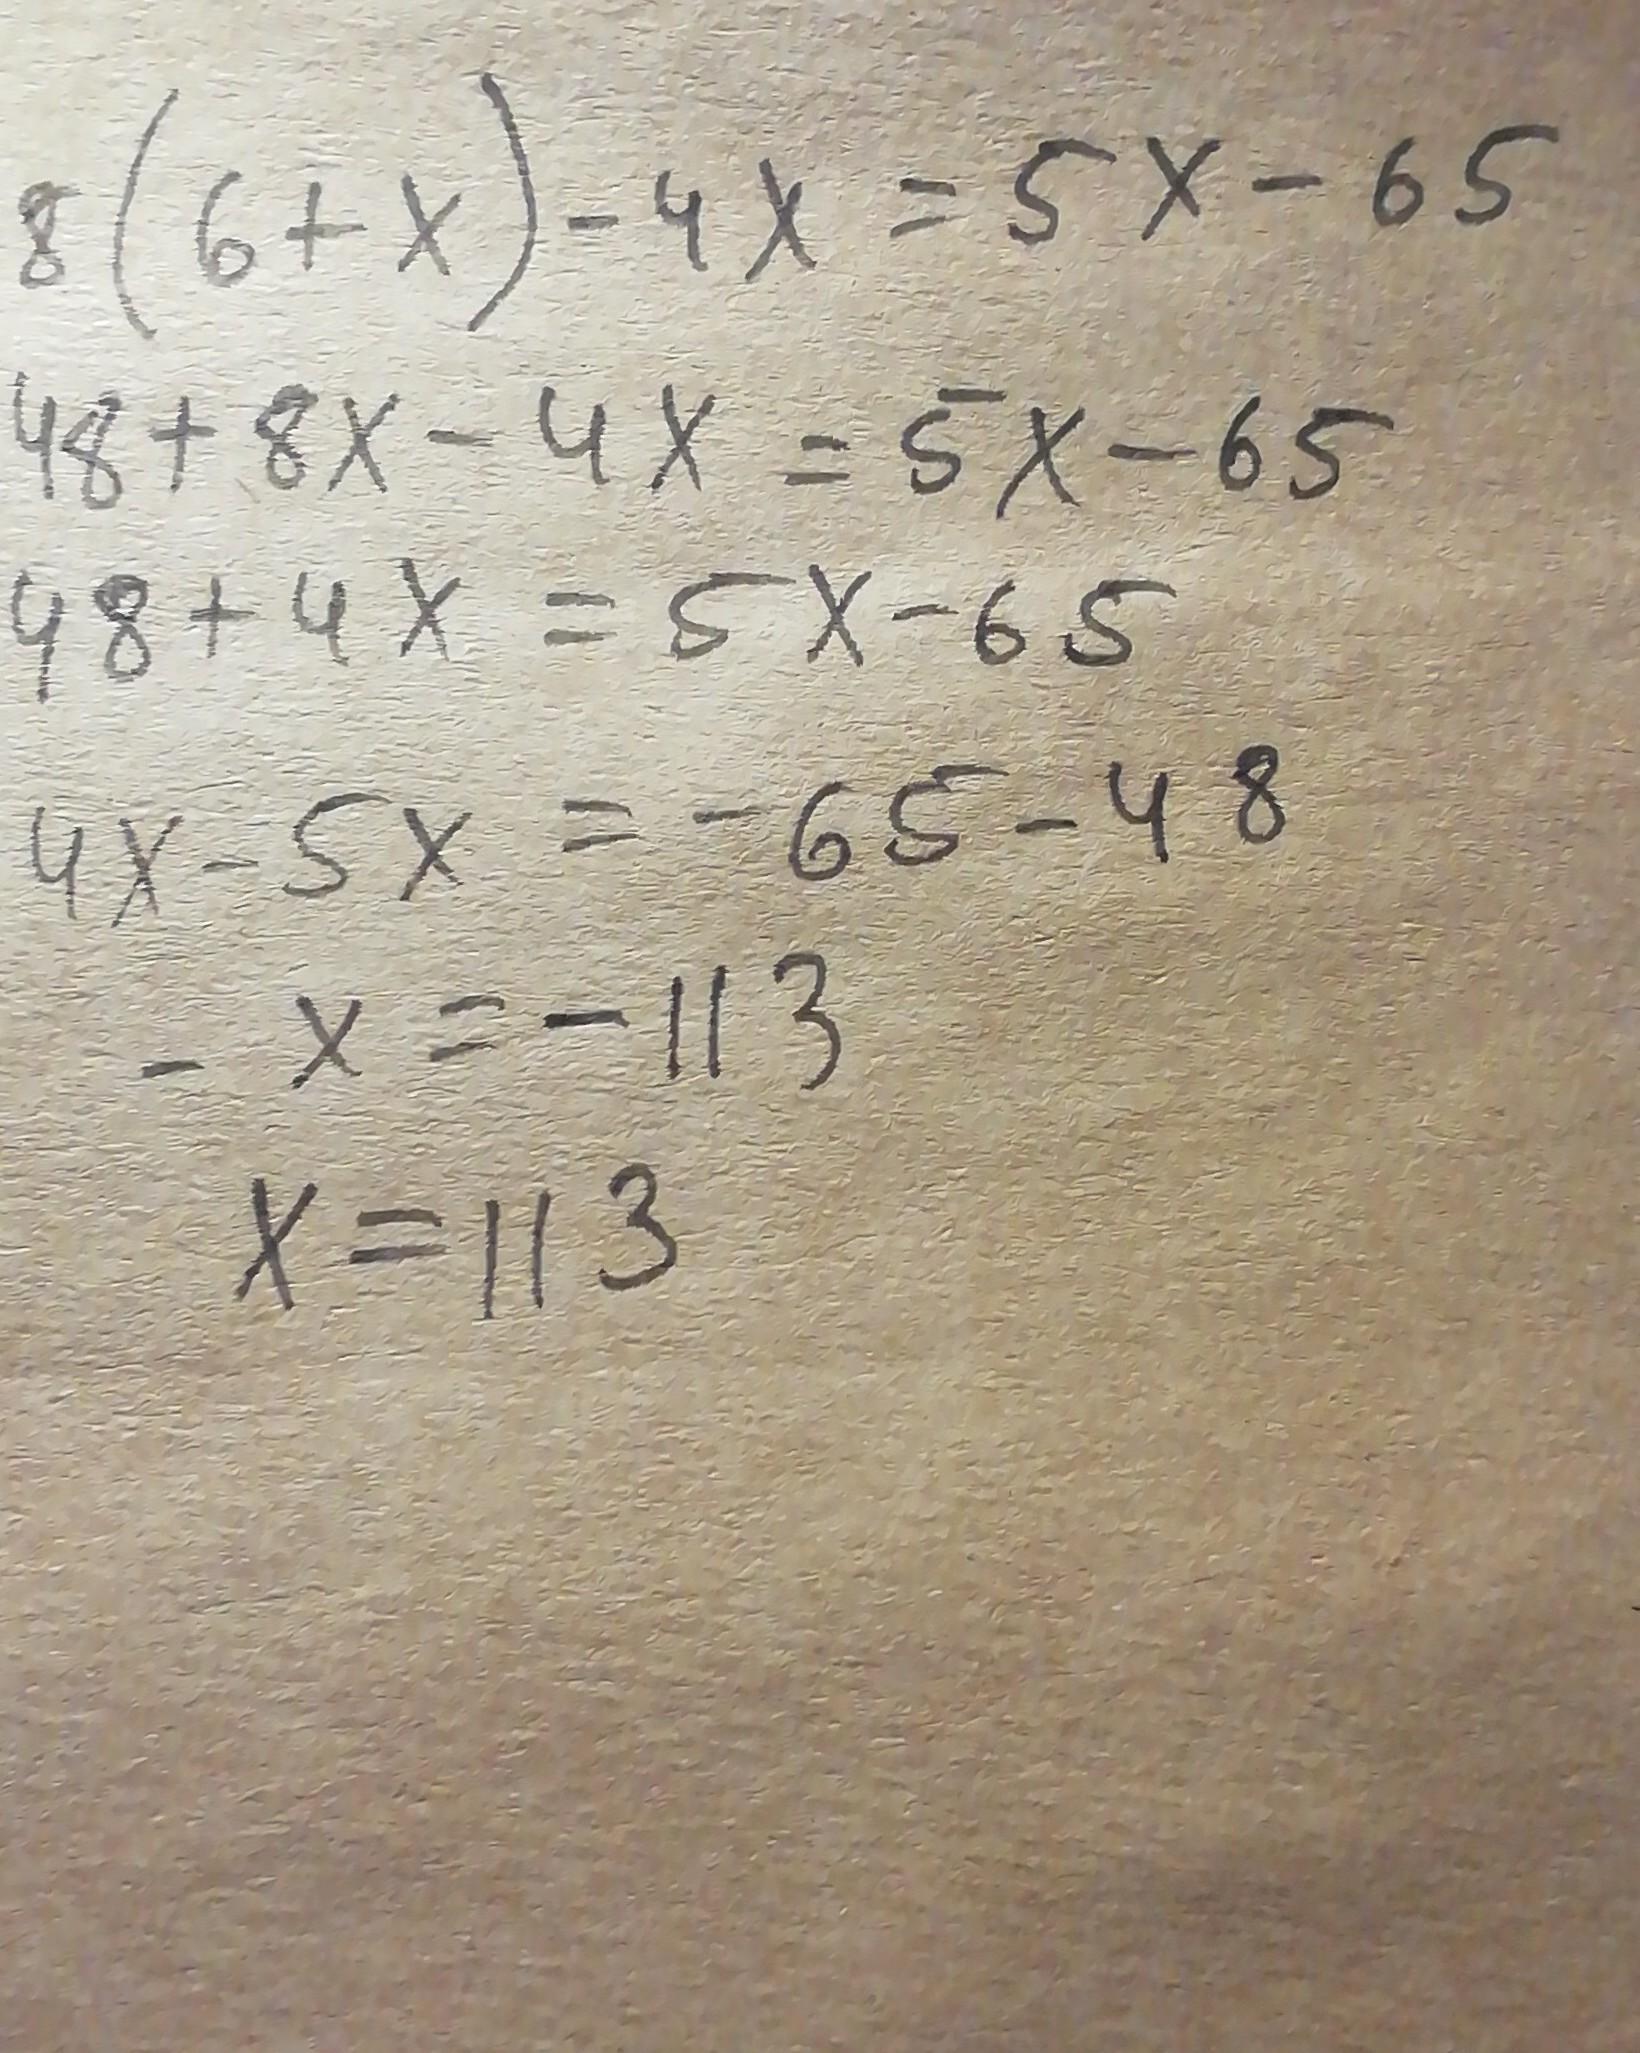 8(6+x)-4x=5x-65
48+8x-4x=5x-65
48+4x=5x-65
4x-5x=-65-48
-x=-113
x=113